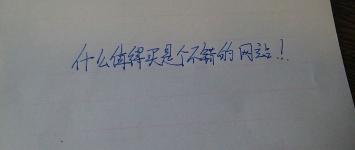 什么值得买是个不错的网站！